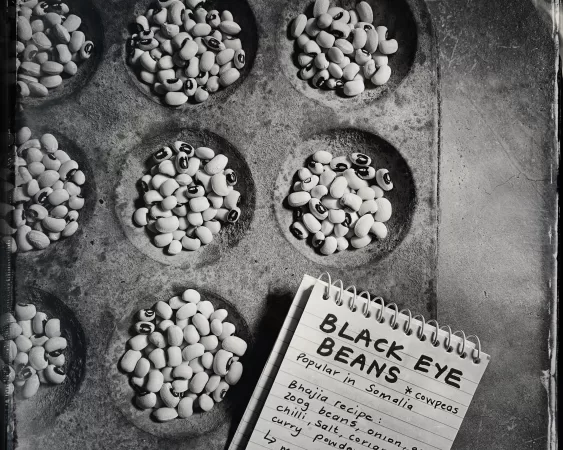 BLACK EYE
BEANS * cowpeas
Popular in Somalia
Bhajia recipe :
200g beans, onion,
chilli, salt,
curry powder